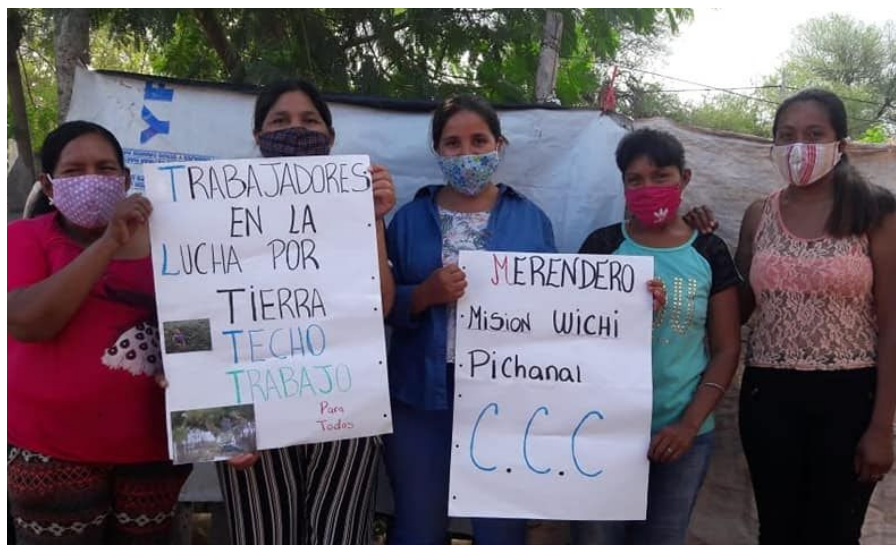 TRABAJADORES
EN LA
LUCHA POR
TIERRA
TECHO
TRABAJO
Para
Todos
MERENDERO
Mision WICHI
Pichanal
C.C.C